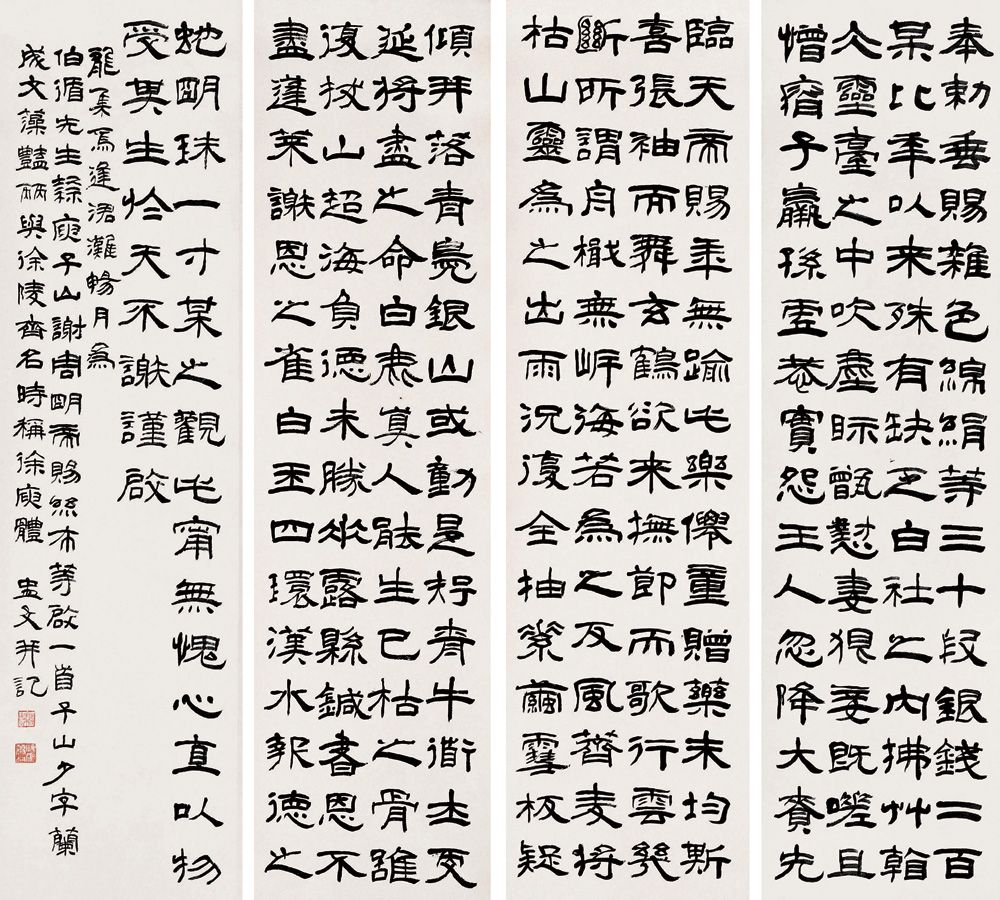 奉勅垂賜雜色綿絹等三十段銀錢二百
某比年以來殊有缺乏白社之內拂艸看
仌靈臺之中吹塵眎甑懟妻狠妾既嗟且
憎瘠子羸孫虛恭實怨王人忽降大賚先
臨天帝賜年無踰此樂僊童贈藥未均斯
喜張袖而舞玄鶴欲來撫節而歌行雲幾
斷所謂舟檝無岸海若為之反風薺麦將
枯山靈為之出雨況復全抽素繭雪板疑
傾并落青鳧銀山或動是知青牛道士更
延將盡之命白鹿真人能生已枯之骨雖
復拔山超海負德未勝垂露縣鍼書恩不
盡蓬萊謝恩之雀白玉四環漢水報德之
虵明珠一寸某之觀此甯無愧心直以物
受其生於天不謝謹啟
龍集焉逢涒灘暢月為
伯循先生隸庾子山謝周明帝賜絲布等啟一首子山少字蘭
成文藻豔炳與徐陵齊名時稱徐庾體 孟文并記